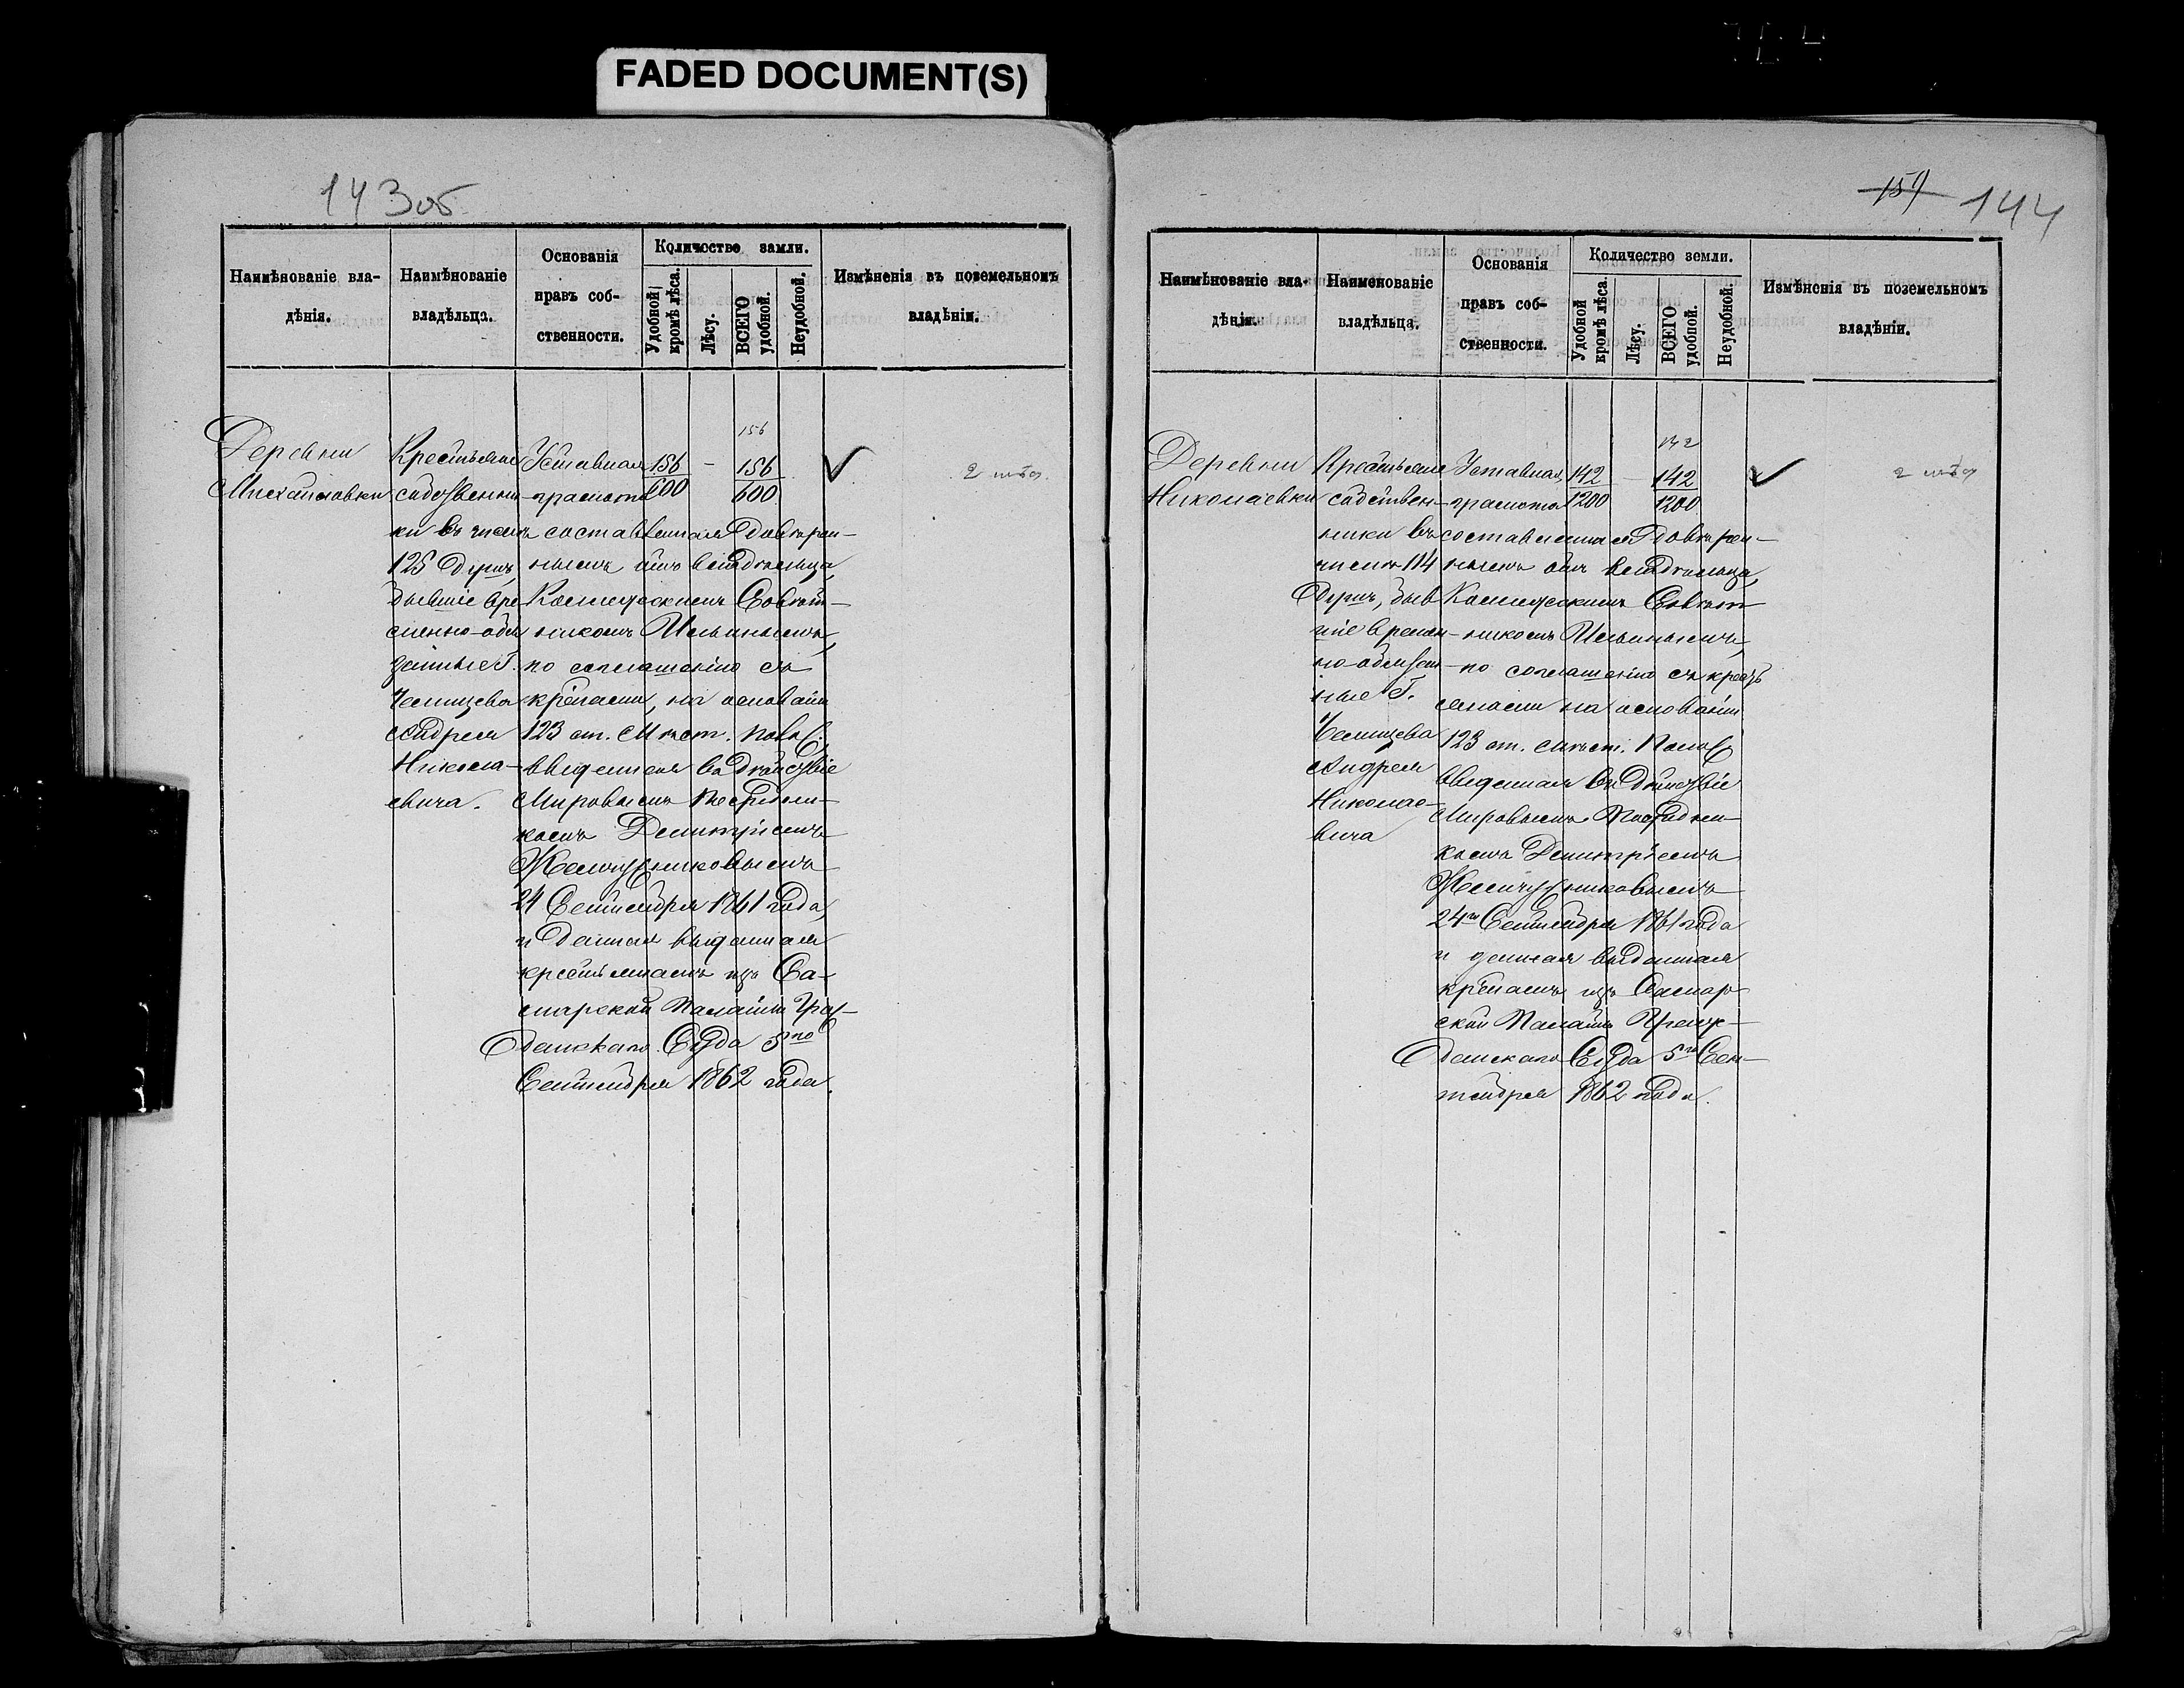 FADED DOCUMENT(S)
143 об
Наимѣнованіе вла-
дѣнія.
Наимѣнованіе
владѣльца.
Основанія
правъ соб-
ственности.
Количество земли.
Удобной
кромѣ лѣса.
Лѣсу.
ВСЕГО
удобной.
Неудобной.
Измѣненія въ поземельномъ
владѣніи.
Деревни
Михайловки
Крестьяне
собственни-
ки въ числѣ
125 душъ,
бывшіе вре
менно-обя
занные Г.
Челищева
Андрея
Никола-
евича.
Уставная
грамота
составленная довѣрен-
нымъ отъ владѣльца,
Коллежскимъ Совѣт-
никомъ Ильинымъ,
по соглашенію съ
крѣпасти, на основаніи
123 ст. Мѣст. полож.
введенная въ дѣйствіе
Мировымъ Посредни-
комъ Дмитріемъ
Жемчужниковымъ
24 Сентября 1861 года,
и данная выданная
крестьянамъ изъ Са-
марской Палаты Граж-
данскаго Суда 5го
Сентября 1862 года.
156
600
–
156
156
600
2 
151
144
Наимѣнованіе вла-
дѣнія.
Наименованіе
владѣльца.
Основанія
правъ соб-
ственности.
Количество земли.
Удобной
кромѣ лѣса.
Лѣсу.
ВСЕГО
удобной.
Неудобной.
Измѣненія въ поземельномъ
владѣніи.
Деревни
Николаевки
Крестьяне
собствен-
ники въ
числѣ 114
душъ, быв
шіе времен-
но-обязан-
ные Г.
Челищева
Андрея
Николае-
вича
Уставная
грамота
составленная довѣрен-
нымъ отъ владѣльца,
Коллежскимъ Совѣт
никомъ Ильинымъ,
по соглашенію съ крест
на основаніи
123 ст. мѣст. Полож
введенная въ дѣйствіе
Мировымъ Посредни-
комъ Дмитріемъ
Жемчужниковымъ
24го Сентября 1861 года
и данная выданная
изъ Самар-
ской Палаты Граж-
данскаго Суда 5го Сен-
тября 1862 года.
142
1200
–
142
142
1200
2